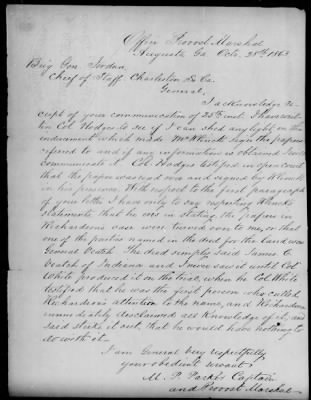 Office Provost Marshal
Augusta Ga Octo. 28th 1863
Brig Gen. Jordan,
Chief of Staff Charleston So Ca.
General,
I acknowledge re-
ceipt of your communication of 25th inst. I have writ-
ten Col Hodges to see if I can shed any light on the
which made sign the papers
referred to and if any information is obtained I will
communicate it. Col. Hodges testified in open court
that the paper was read over and signed by
in his presence. With respect to the first paragraph
of your letter I have only to say respecting
statements that he was in stating the papers in
Richardsons case were turned over to me, or that
one of the parties named in the deed for the land was
General Veatch. The deed simply said James C
Veatch of Indiana and I never saw it until Col
White produced it on the trial, when he Col White
testified that he was the first person who called
Richardson's attention to the name, and Richardson
immediately disclaimed all knowledge of it, and
said strike it out, that he would have nothing to
do with it—
I am General very respectfully
your obedient servant
Captain
and Provost Marshal